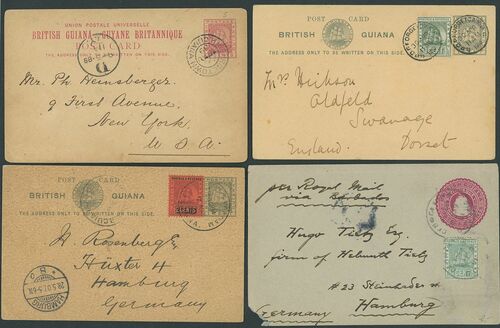 UNION POSTALE UNIVERSELLE
BRITISH GUIANA - GUYANE BRITANNIQUE
POST CARD
THE ADDRESS ONLY TO BE WRITTEN ON THIS SIDE.
D
Mr. Ph Heinsberger.
9 First Avenue.
New York.
U S A.
POST CARD
BRITISH GUIANA
THE ADDRESS ONLY TO BE WRITTEN ON THIS SIDE.
Mrs Hickson
Oldfeld
Swanage
Dorset
England.
POST CARD
BRITISH GUIANA
THE ADDRESS ONLY TO BE WRITTEN ON THIS SIDE.
2 CENTS
H. Rosenberg Esq
Hüxter 4
Hamburg
Germany
HAMBURG
28.5.07.5-6N
per Royal Mail
via Barbados
Hugo Tietz Esq.
firm of Helmuth Tietz
# 23 Steinhöder st
Hamburg
Germany